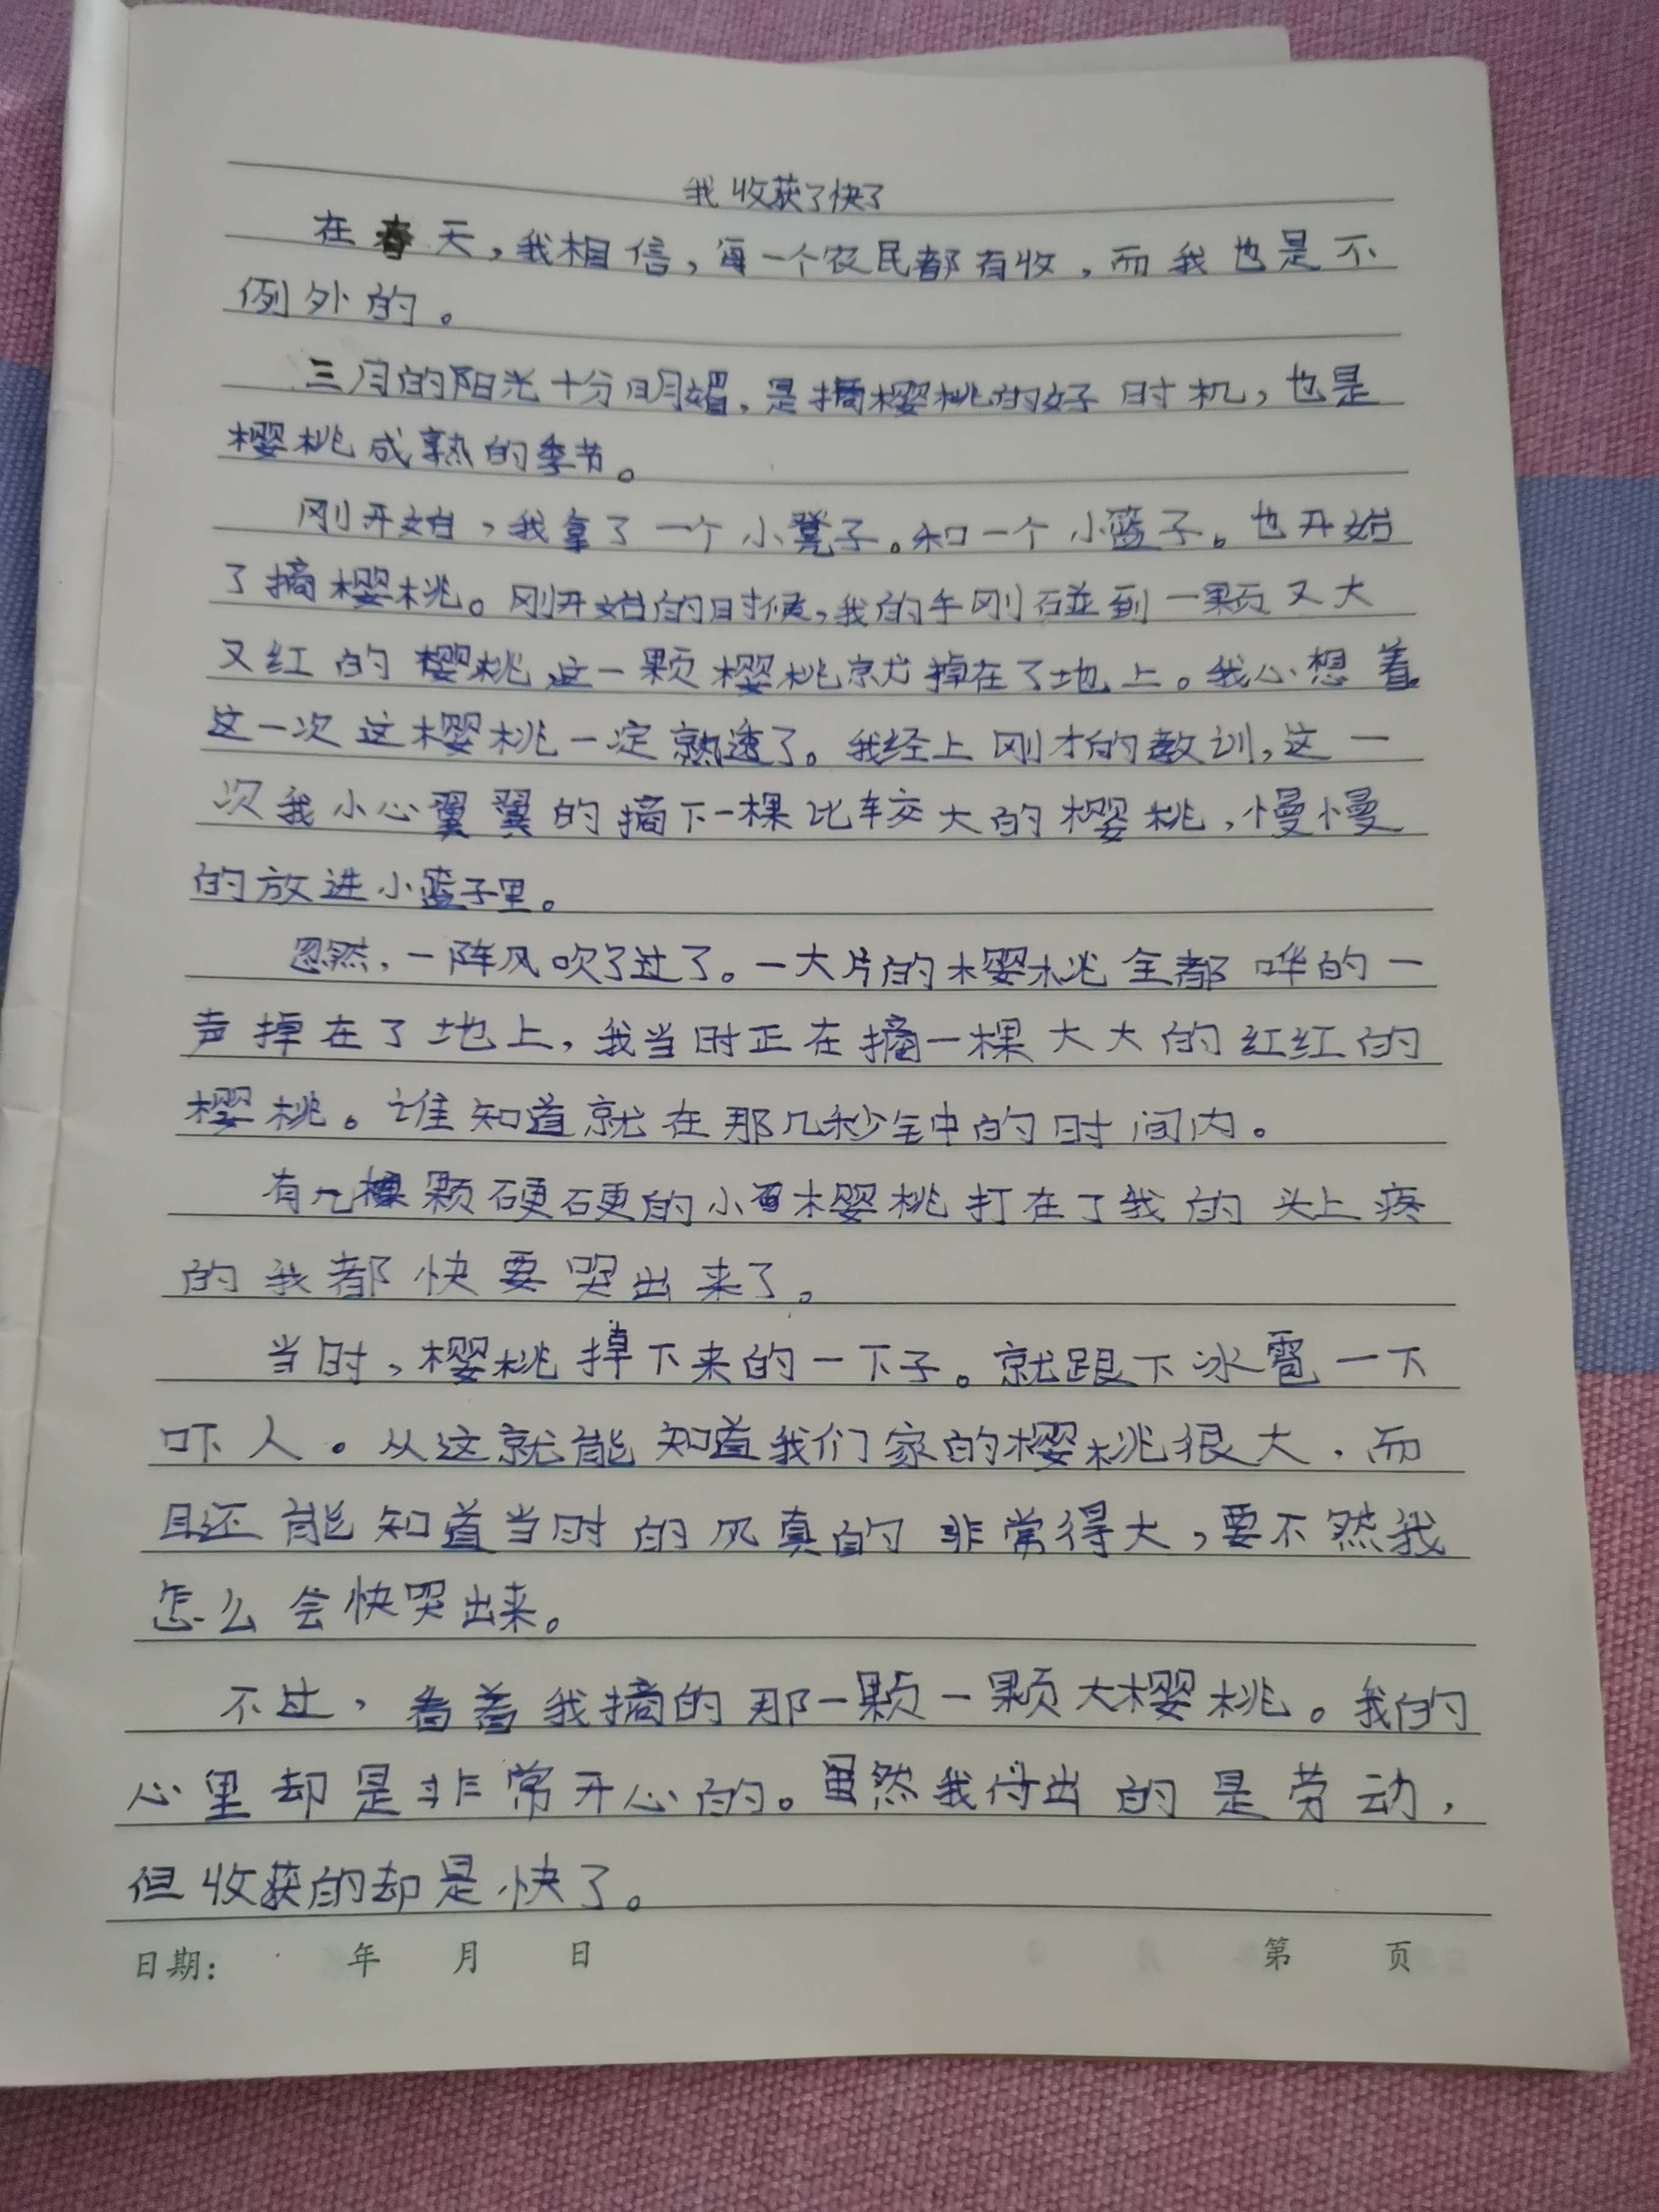 我收获了快了
在春天，我相信，每一个农民都有收，而我也是不
例外的。
三月的阳光十分明媚，是摘樱桃的好时机，也是
樱桃成熟的季节。
刚开始，我拿了一个小凳子。和一个小篮子。也开始
了摘樱桃。刚开始的时候，我的手刚碰到一颗又大
又红的樱桃，这一颗樱桃就掉在了地上。我心想着
这一次这樱桃一定熟透了。我经上刚才的教训，这一
次我小心翼翼的摘下一棵比较大的樱桃，慢慢
的放进小篮子里。
忽然，一阵风吹了过了。一大片的樱桃全都哗的一
声掉在了地上，我当时正在摘一棵大大的红红的
樱桃。谁知道就在那几秒钟的时间内。
有几颗硬硬的小樱桃打在了我的头上疼
的我都快要哭出来了。
当时，樱桃掉下来的一下子。就跟下冰雹一下
吓人。从这就能知道我们家的樱桃很大，而
且还能知道当时的风真的非常得大，要不然我
怎么会快哭出来。
不过，看着我摘的那一颗一颗大樱桃。我的
心里却是非常开心的。虽然我付出的是劳动，
但收获的却是快了。
日期： 年 月 日 第 页